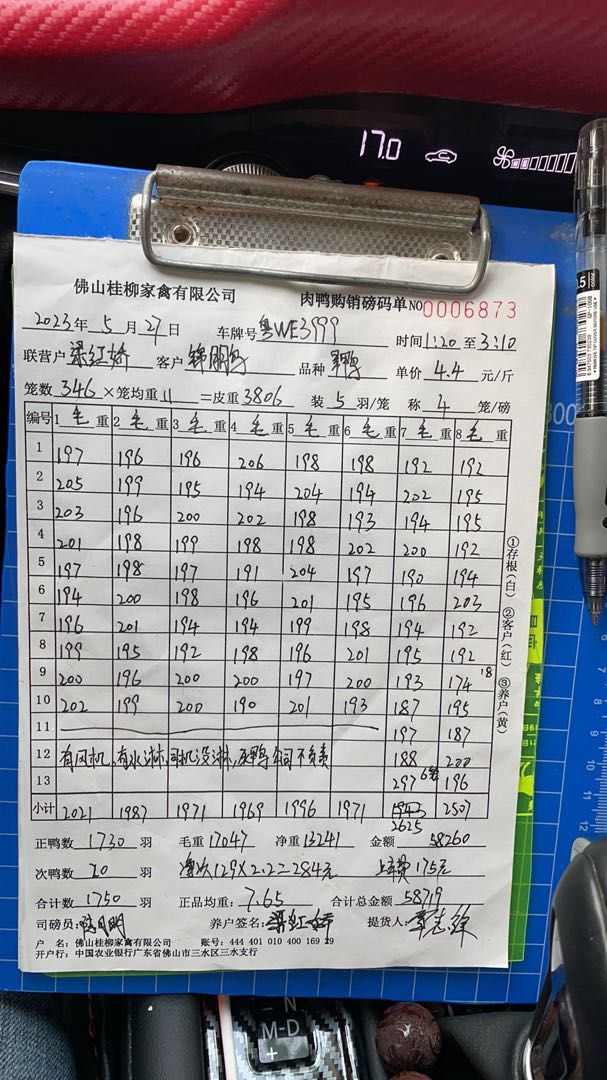 17.0
佛山桂柳家禽有限公司 肉鸭购销磅码单 NO 0006873
2023年 5月 27日 车牌号 粤WE3999 时间 1:20 至 3:10
联营户 梁红娇 客户 锦鹏 品种 单价 4.4 元/斤
笼数 346 ×笼均重 11 =皮重 3806 装 5 羽/笼 称 4 笼/磅
编号 1 毛 重 2 毛 重 3 毛 重 4 毛 重 5 毛 重 6 毛 重 7 毛 重 8 毛 重
1 197 196 196 206 198 198 192 192
2 205 199 195 194 204 194 202 195
3 203 196 200 202 198 193 194 195
4 201 198 199 198 198 202 200 192
5 197 198 197 191 204 197 190 194
6 194 200 198 196 201 195 196 203
7 196 201 194 194 199 198 194 192
8 199 195 192 198 196 201 195 192
9 200 196 200 200 197 200 193 174 18
10 202 199 200 190 201 193 187 195
11 197 187
12 有风机,有水淋,司机没淋,死鸭公司不负责 188 200
13 297 6笼 196
小计 2021 1987 1971 1969 1996 1971 2625 2507
正鸭数 1730 羽 毛重 17047 净重 13241 金额 58260
次鸭数 20 羽 净次129×2.2=284元 上车费175元
合计数 1750 羽 正品均重: 7.65 合计总金额 58719
司磅员: 养户签名: 梁红娇 提货人:
户 名: 佛山桂柳家禽有限公司 账号: 444 401 010 400 169 29
开户行: 中国农业银行广东省佛山市三水区三水支行
①存根(白) ②客户(红) ③养户(黄)
M-D
+